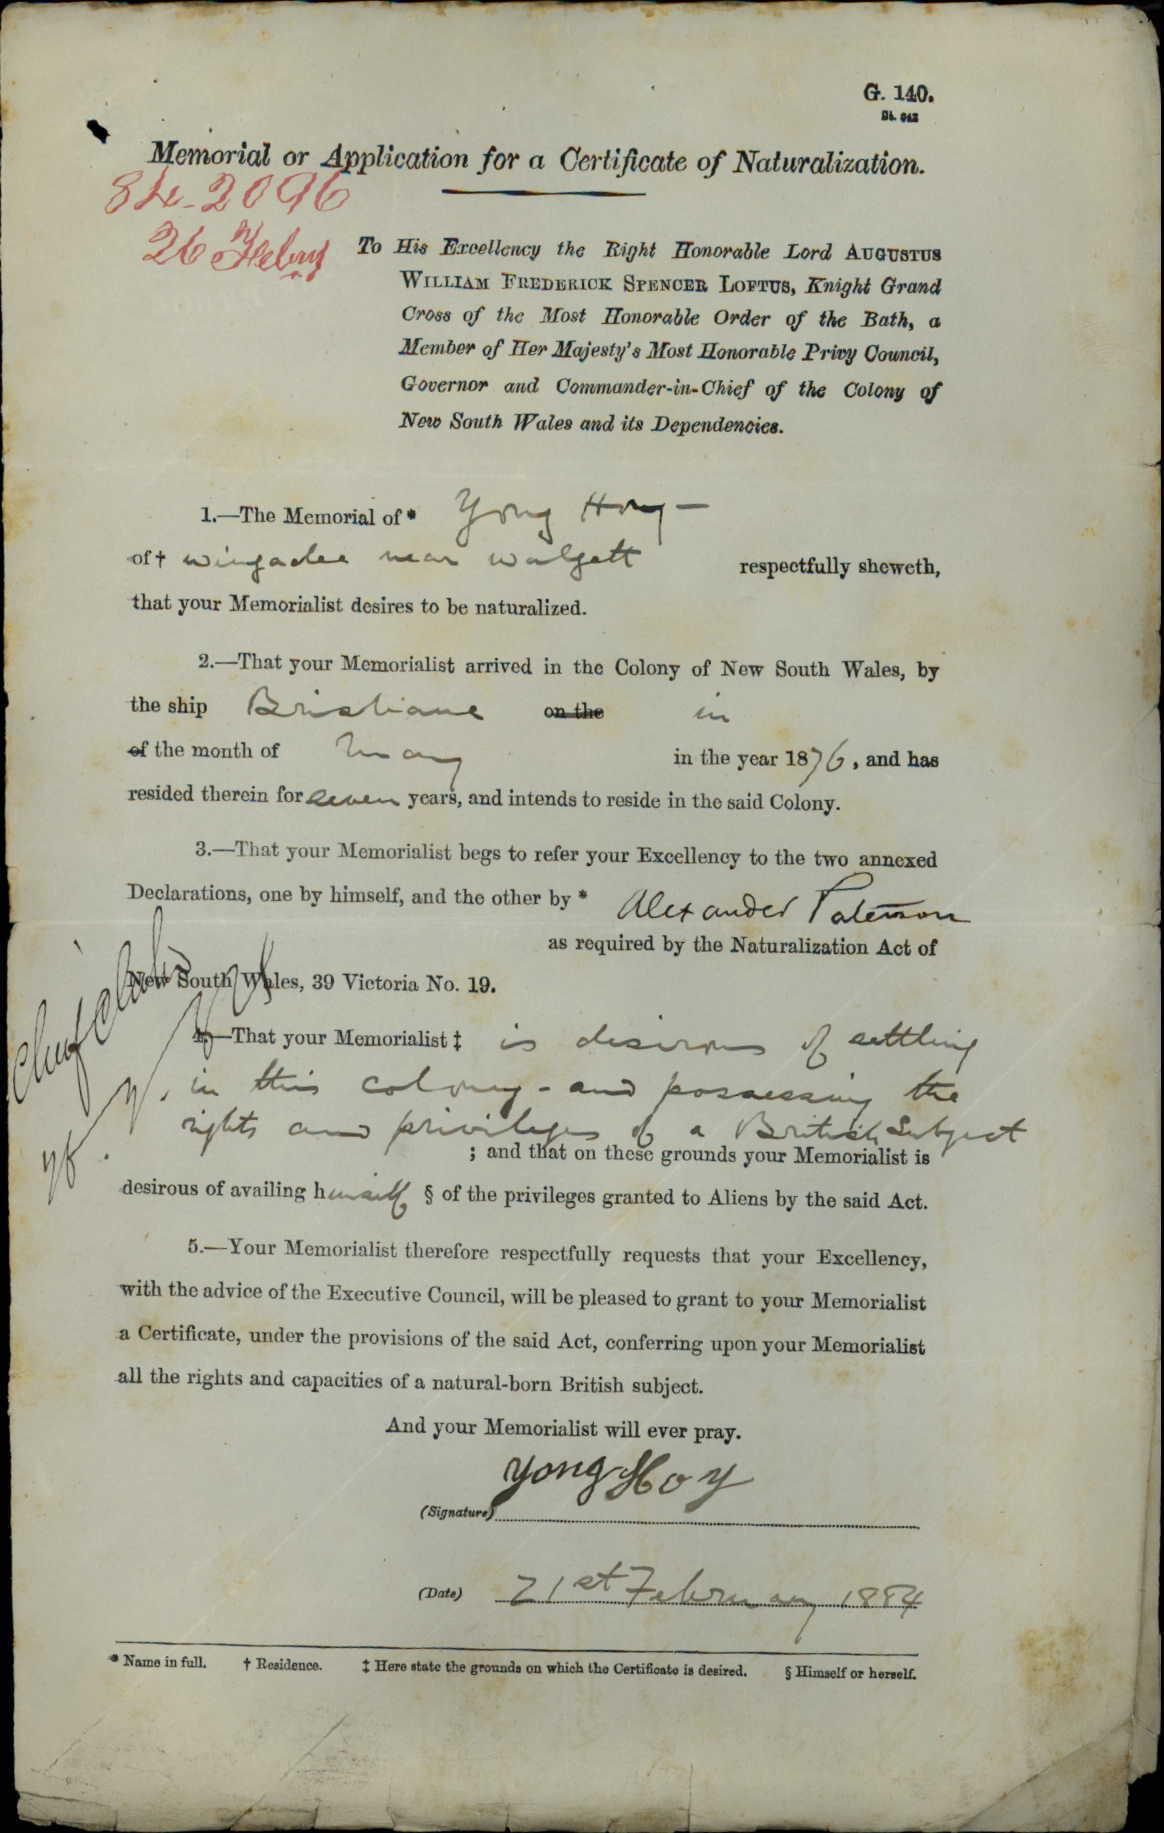 G. 140.
Memorial or Application for a Certificate of Naturalization.
84-2096
26 Febry
To His Excellency the Right Honorable Lord AUGUSTUS
WILLIAM FREDERICK SPENCER LOFTUS, Knight Grand
Cross of the Most Honorable Order of the Bath, a
Member of Her Majesty's Most Honorable Privy Council,
Governor and Commander-in-Chief of the Colony of
New South Wales and its Dependencies.
1.—The Memorial of * Yong Hoy —
of † wingadee near walgett respectfully sheweth,
that your Memorialist desires to be naturalized.
2.—That your Memorialist arrived in the Colony of New South Wales, by
the ship Brisbane on the in
of the month of May in the year 1876, and has
resided therein for seven years, and intends to reside in the said Colony.
3.—That your Memorialist begs to refer your Excellency to the two annexed
Declarations, one by himself, and the other by * Alexander Paterson
as required by the Naturalization Act of
New South Wales, 39 Victoria No. 19.
Chief Clerk
4.—That your Memorialist ‡ is desirous of settling
in this colony - and possessing the
rights and privileges of a British Subject
; and that on these grounds your Memorialist is
desirous of availing himself § of the privileges granted to Aliens by the said Act.
5.—Your Memorialist therefore respectfully requests that your Excellency,
with the advice of the Executive Council, will be pleased to grant to your Memorialist
a Certificate, under the provisions of the said Act, conferring upon your Memorialist
all the rights and capacities of a natural-born British subject.
And your Memorialist will ever pray.
(Signature) Yong Hoy
(Date) 21st February 1884
* Name in full. † Residence. ‡ Here state the grounds on which the Certificate is desired. § Himself or herself.